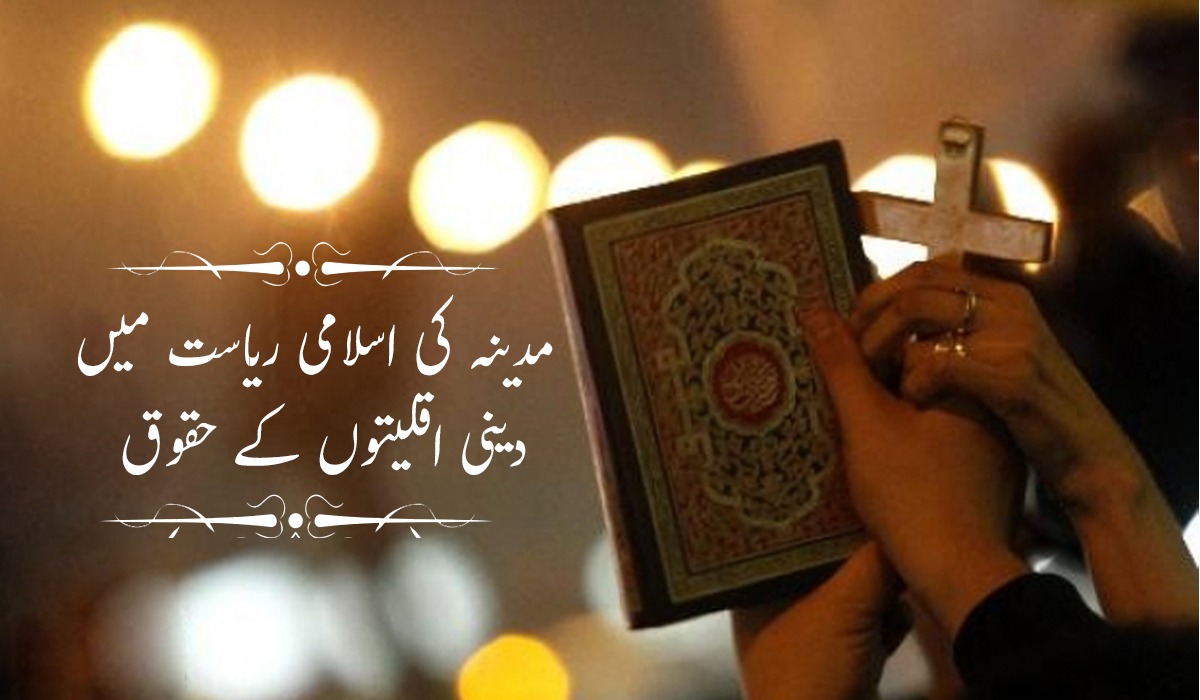 مدینہ کی اسلامی ریاست میں
دینی اقلیتوں کے حقوق